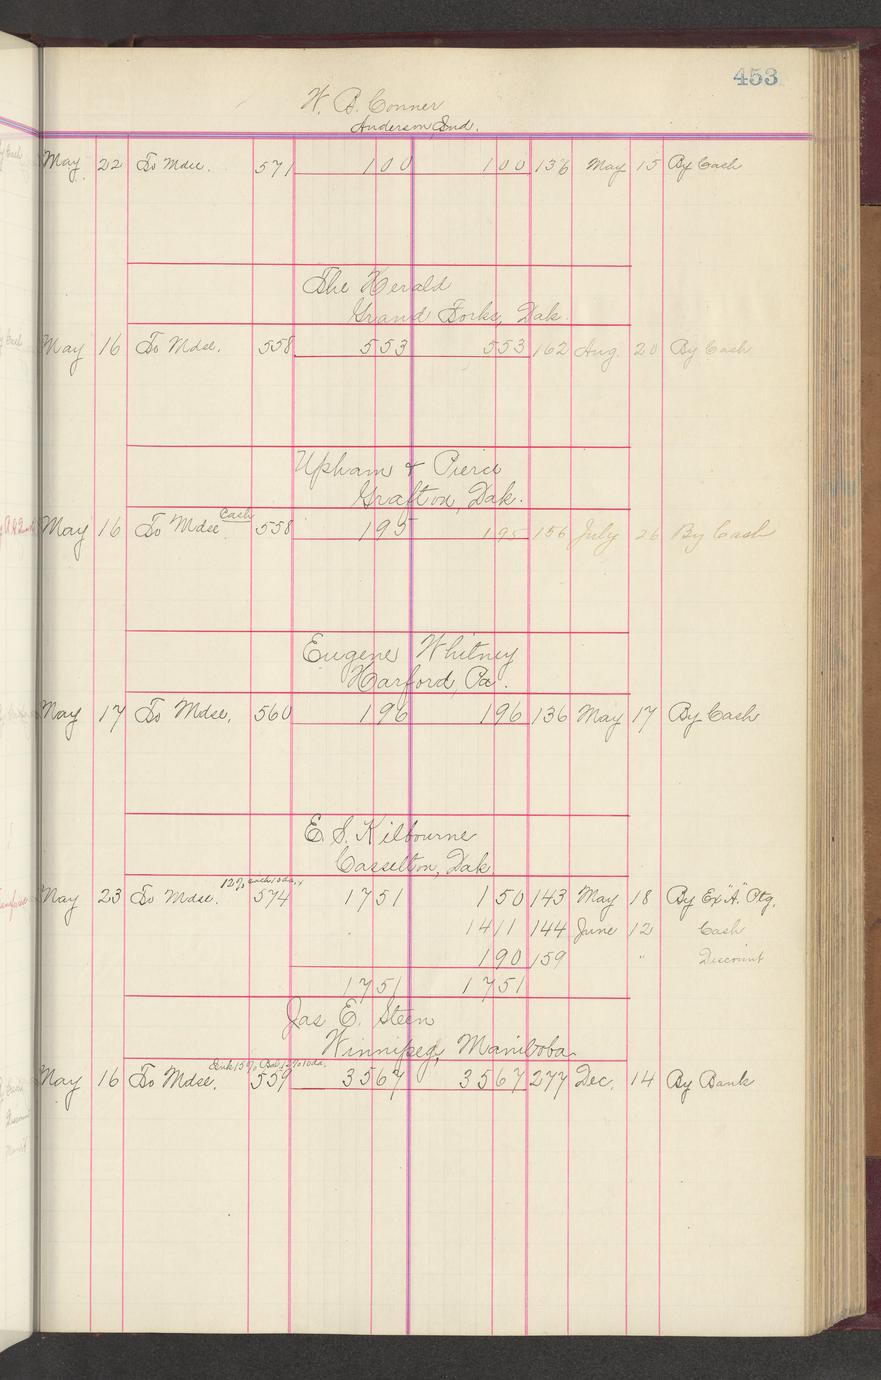 453
W. B. Conner
Anderson, Ind.
May 22 To Mdse. 571 100 100 136 May 15 By Cash
The Herald
Grand Forks, Dak.
May 16 To Mdse. 558 553 553 162 Aug. 20 By Cash
Upham & Pierce
Grafton, Dak.
Cash
May 16 To Mdse 558 195 195 156 July 26 By Cash
Eugene Whitney
Harford, Pa.
May 17 To Mdse. 560 196 196 136 May 17 By Cash
E. S. Kilbourne
Casselton, Dak
12% cash 10 da.
May 23 To Mdse. 574 1751 150 143 May 18 By Ex "A." Ptg.
1411 144 June 12 Cash
190 159 " Discount
1751 1751
Jas E. Steen
Winnipeg, Manitoba
Ink 15% Bal. 12% 10 da.
May 16 To Mdse. 559 3567 3567 277 Dec. 14 By Bank